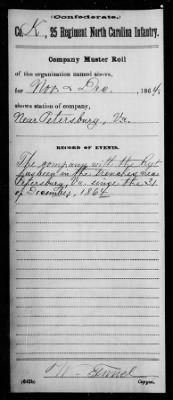 Confederate.
Co. K, 25 Regiment North Carolina Infantry.
Company Muster Roll
of the organization named above,
for Nov. & Dec., 1864.
shows station of company,
Near Petersburg, Va.
RECORD OF EVENTS.
The company with the Regt
has been in the trenches near
Petersburg, Va. since the 31
of December, 1864
Copyist.